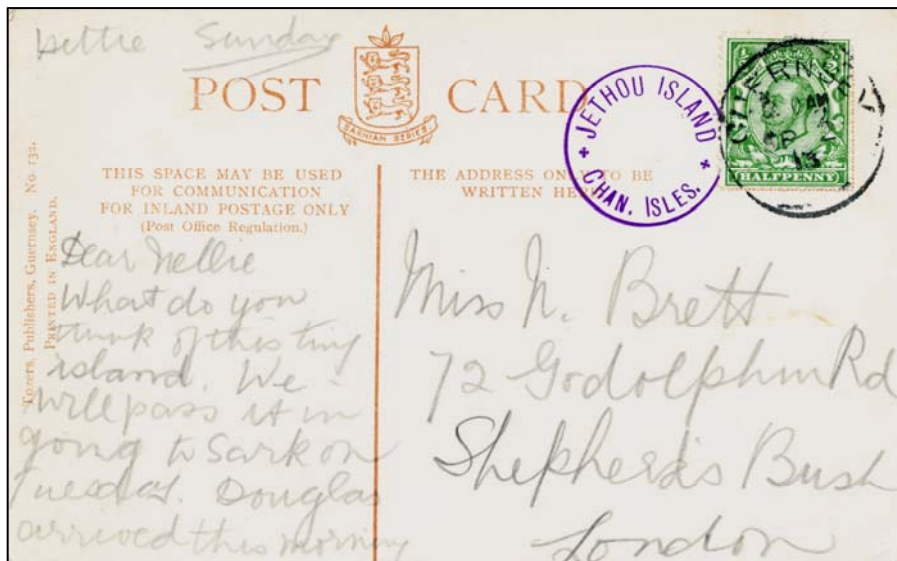 Lettie Sunday
POST CARD
SARNIAN SERIES
JETHOU ISLAND
CHAN. ISLES.
GUERNSEY
AM
13
HALFPENNY
THIS SPACE MAY BE USED
FOR COMMUNICATION
FOR INLAND POSTAGE ONLY
(Post Office Regulation.)
THE ADDRESS ONLY TO BE
WRITTEN HERE
Tozers, Publishers, Guernsey. No 132.
PRINTED IN ENGLAND.
Dear Nellie
What do you
think of this tiny
island. We
will pass it in
going to Sark on
Tuesday. Douglas
arrived this morning
Miss N. Brett
72 Godolphin Rd
Shepherds Bush
London